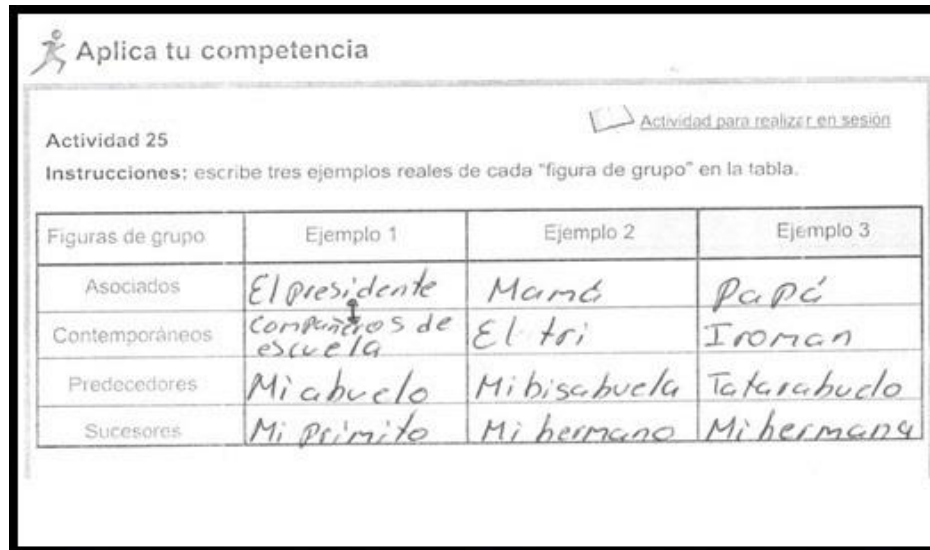 Aplica tu competencia
Actividad para realizar en sesión
Actividad 25
Instrucciones: escribe tres ejemplos reales de cada "figura de grupo" en la tabla.
Figuras de grupo Ejemplo 1 Ejemplo 2 Ejemplo 3
Asociados El presidente Mamá Papá
Contemporáneos Compañeros de escuela El tri Iroman
Predecedores Mi abuelo Mi bisabuela Tatarabuelo
Sucesores Mi primito Mi hermano Mi hermana